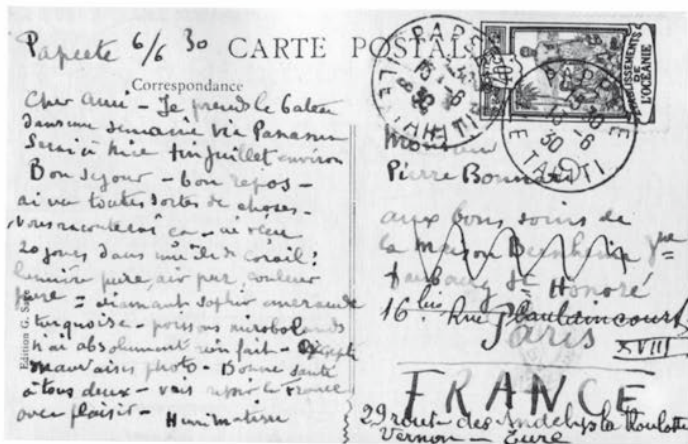 Papeete 6/6 30
CARTE POSTALE
Correspondance
Cher ami – Je prends le bateau
dans une semaine via Panama
Serai à Nice fin juillet environ
Bon sejour – bon repos –
ai vu toutes sortes de choses.
Vous raconterai ça – ai vécu
20 jours dans une île de corail:
lumière pure, air pur, couleur
pure = diamant saphir emeraude
turquoise – poissons mirobolants
n'ai absolument rien fait – excepté
mauvaises photo – Bonne santé
à tous deux – vais revoir la France
avec plaisir –
Henri Matisse
Edition G.
PAPEETE
TAHITI
ETABLISSEMENTS
DE
L'OCÉANIE
PAPEETE
30
TAHITI
Monsieur
Pierre Bonnard
aux bons soins de
la Maison Bernheim Jne
faubourg St Honoré
16 bis Rue Caulaincourt
Paris
XVIII
FRANCE
29 route des Andelys la Roulotte
Vernon – Eure